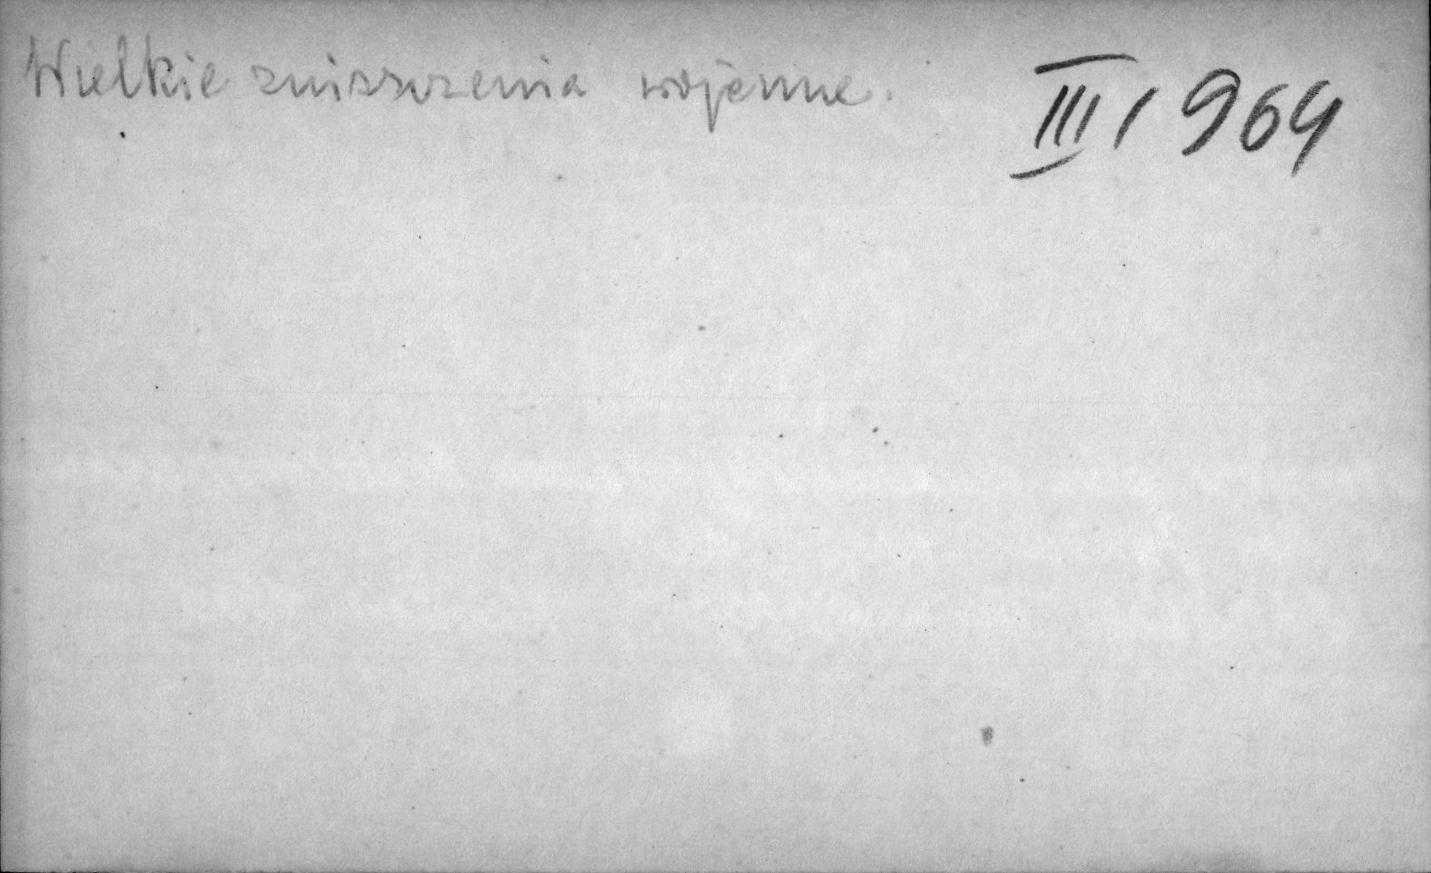 Wielkie zniszczenia wojenne. III 1964